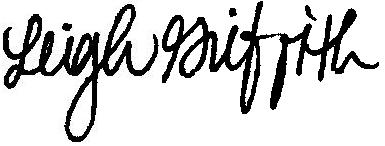 Leigh Griffith